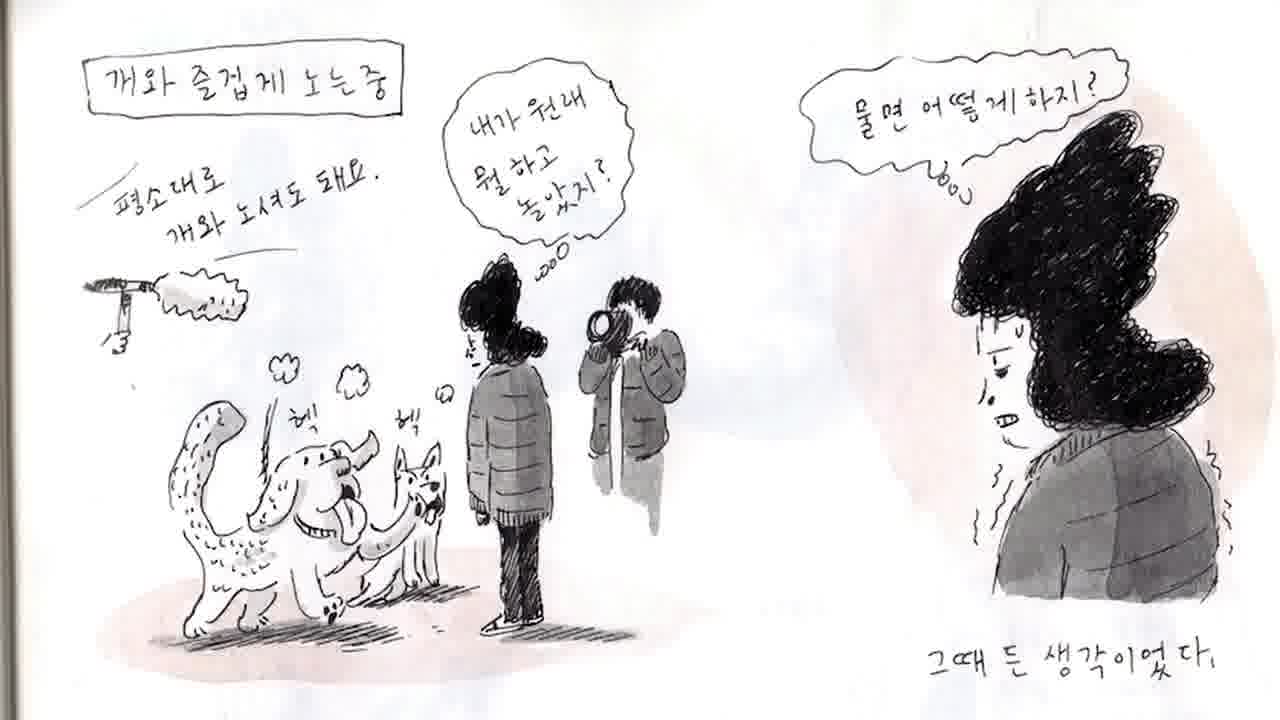 개와 즐겁게 노는중
평소대로
개와 노셔도 돼요.
내가 원래
뭘 하고
놀았지?
헥
헥
물면 어떻게하지?
그때 든 생각이었다.